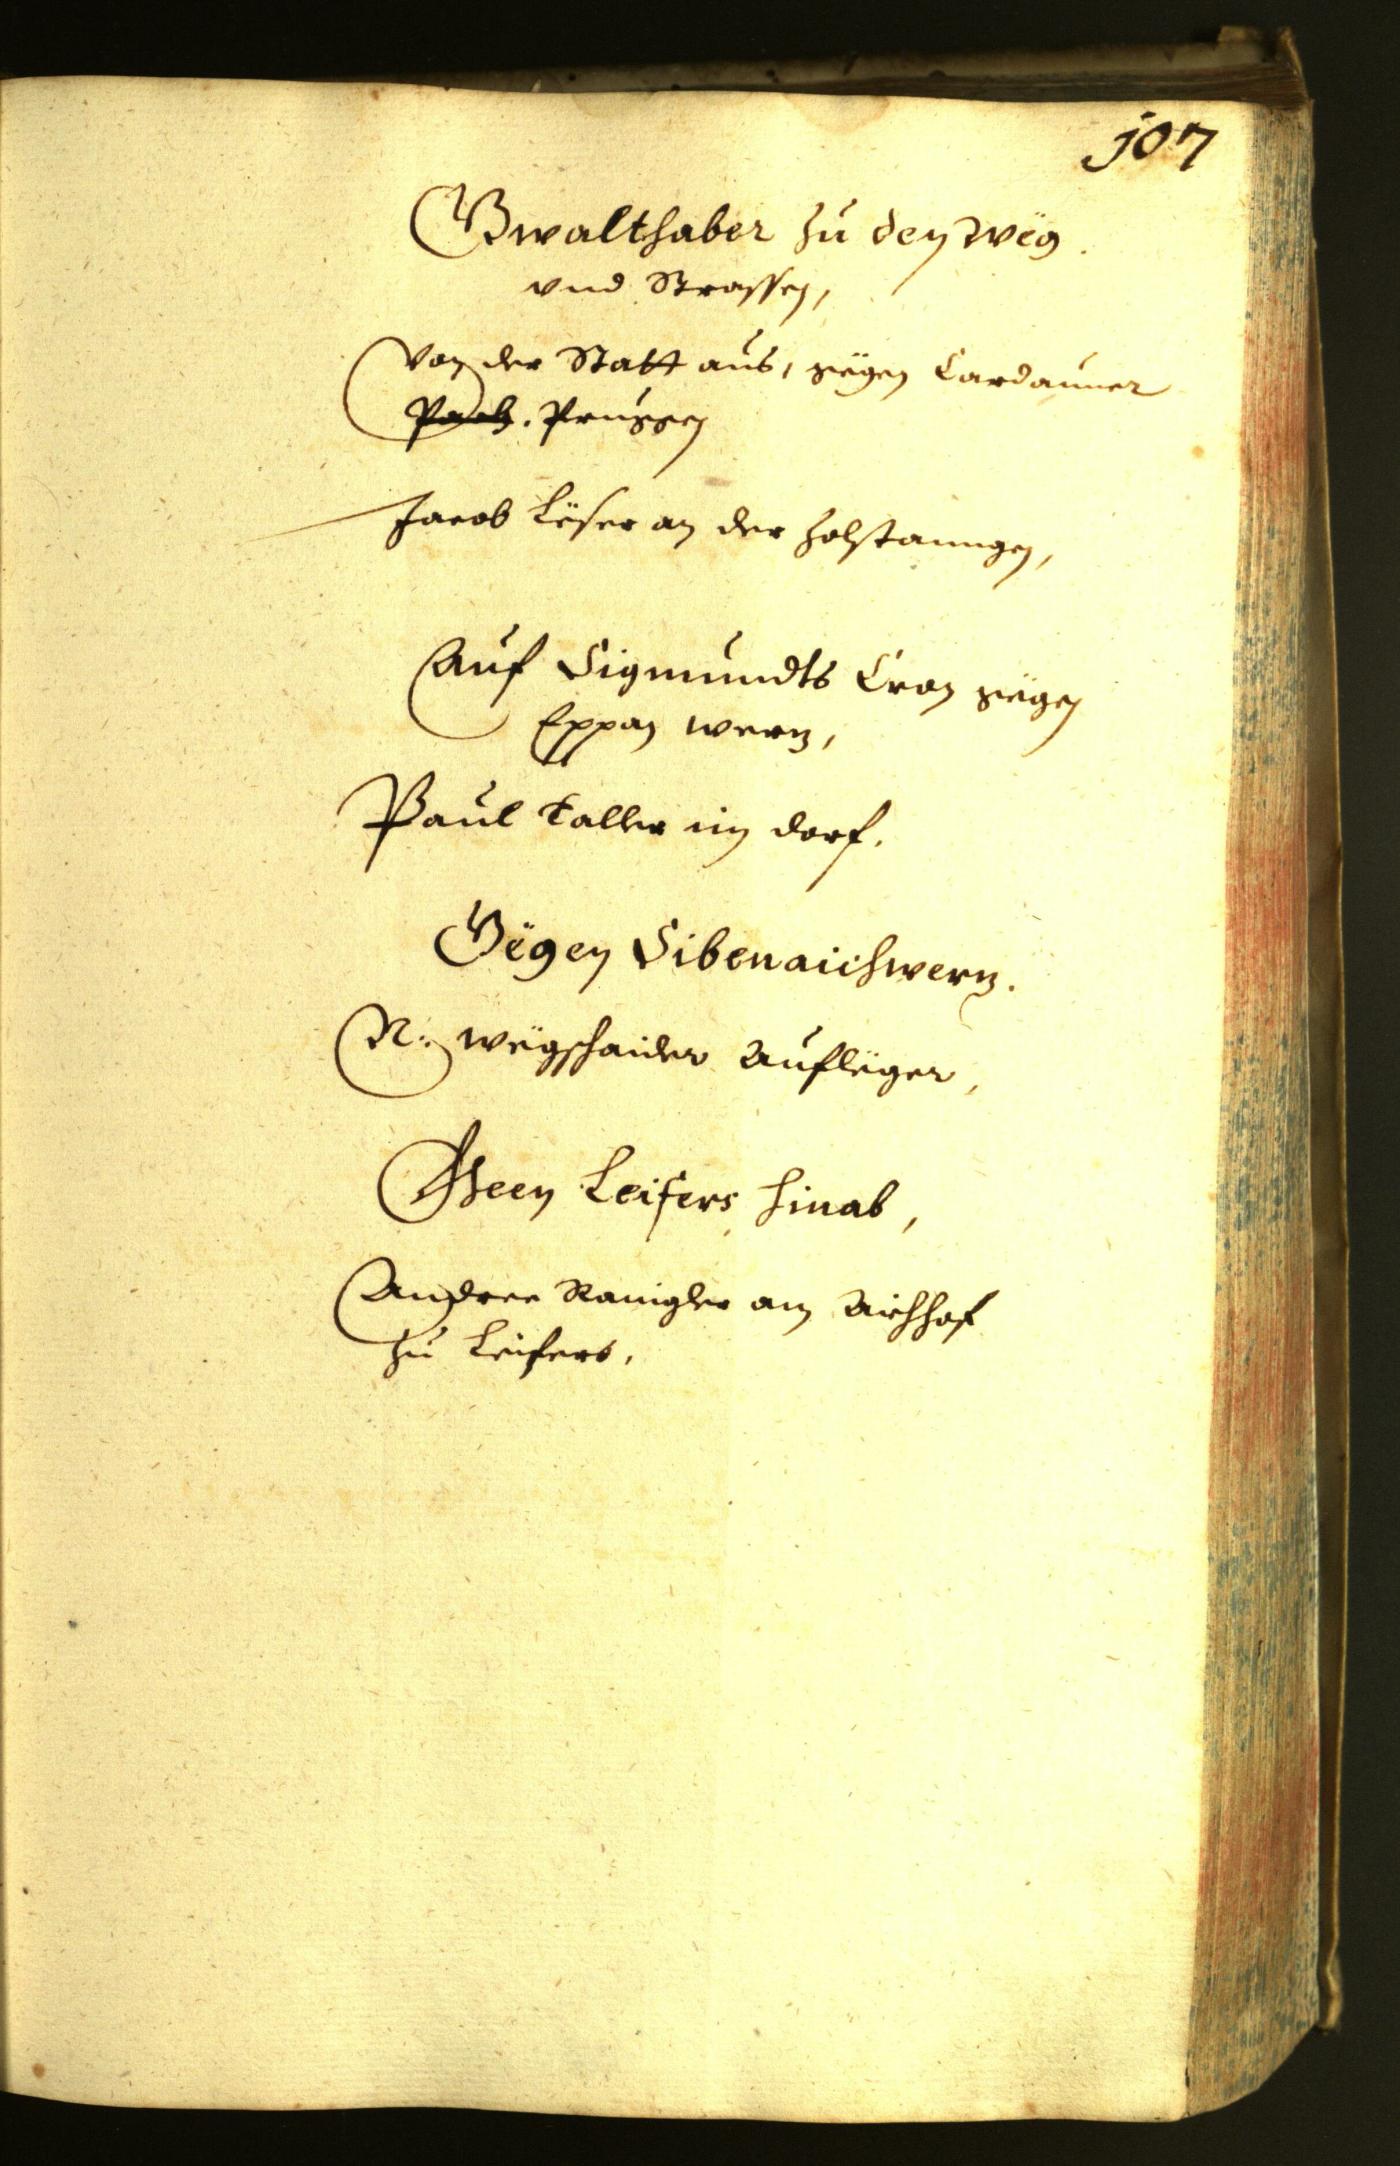 107
Gwalthaber zu den Wëg
vnd Strassen,
Von der Statt aus, gëgen Cardauner
Pach. Pruggen
Jacob Lëser an der Holstanngen,
Auf Sigmundts Cron gëgen
Eppan werz,
Paul Taller im dorf.
Gëgen Sibenaichwerz.
N: Wëgschaider Auflëger,
Gleen Leifers hinab,
Andree Ranigler am Aichhof
zu Leifers.